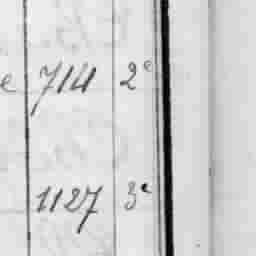 e 714 2e
1127 3e